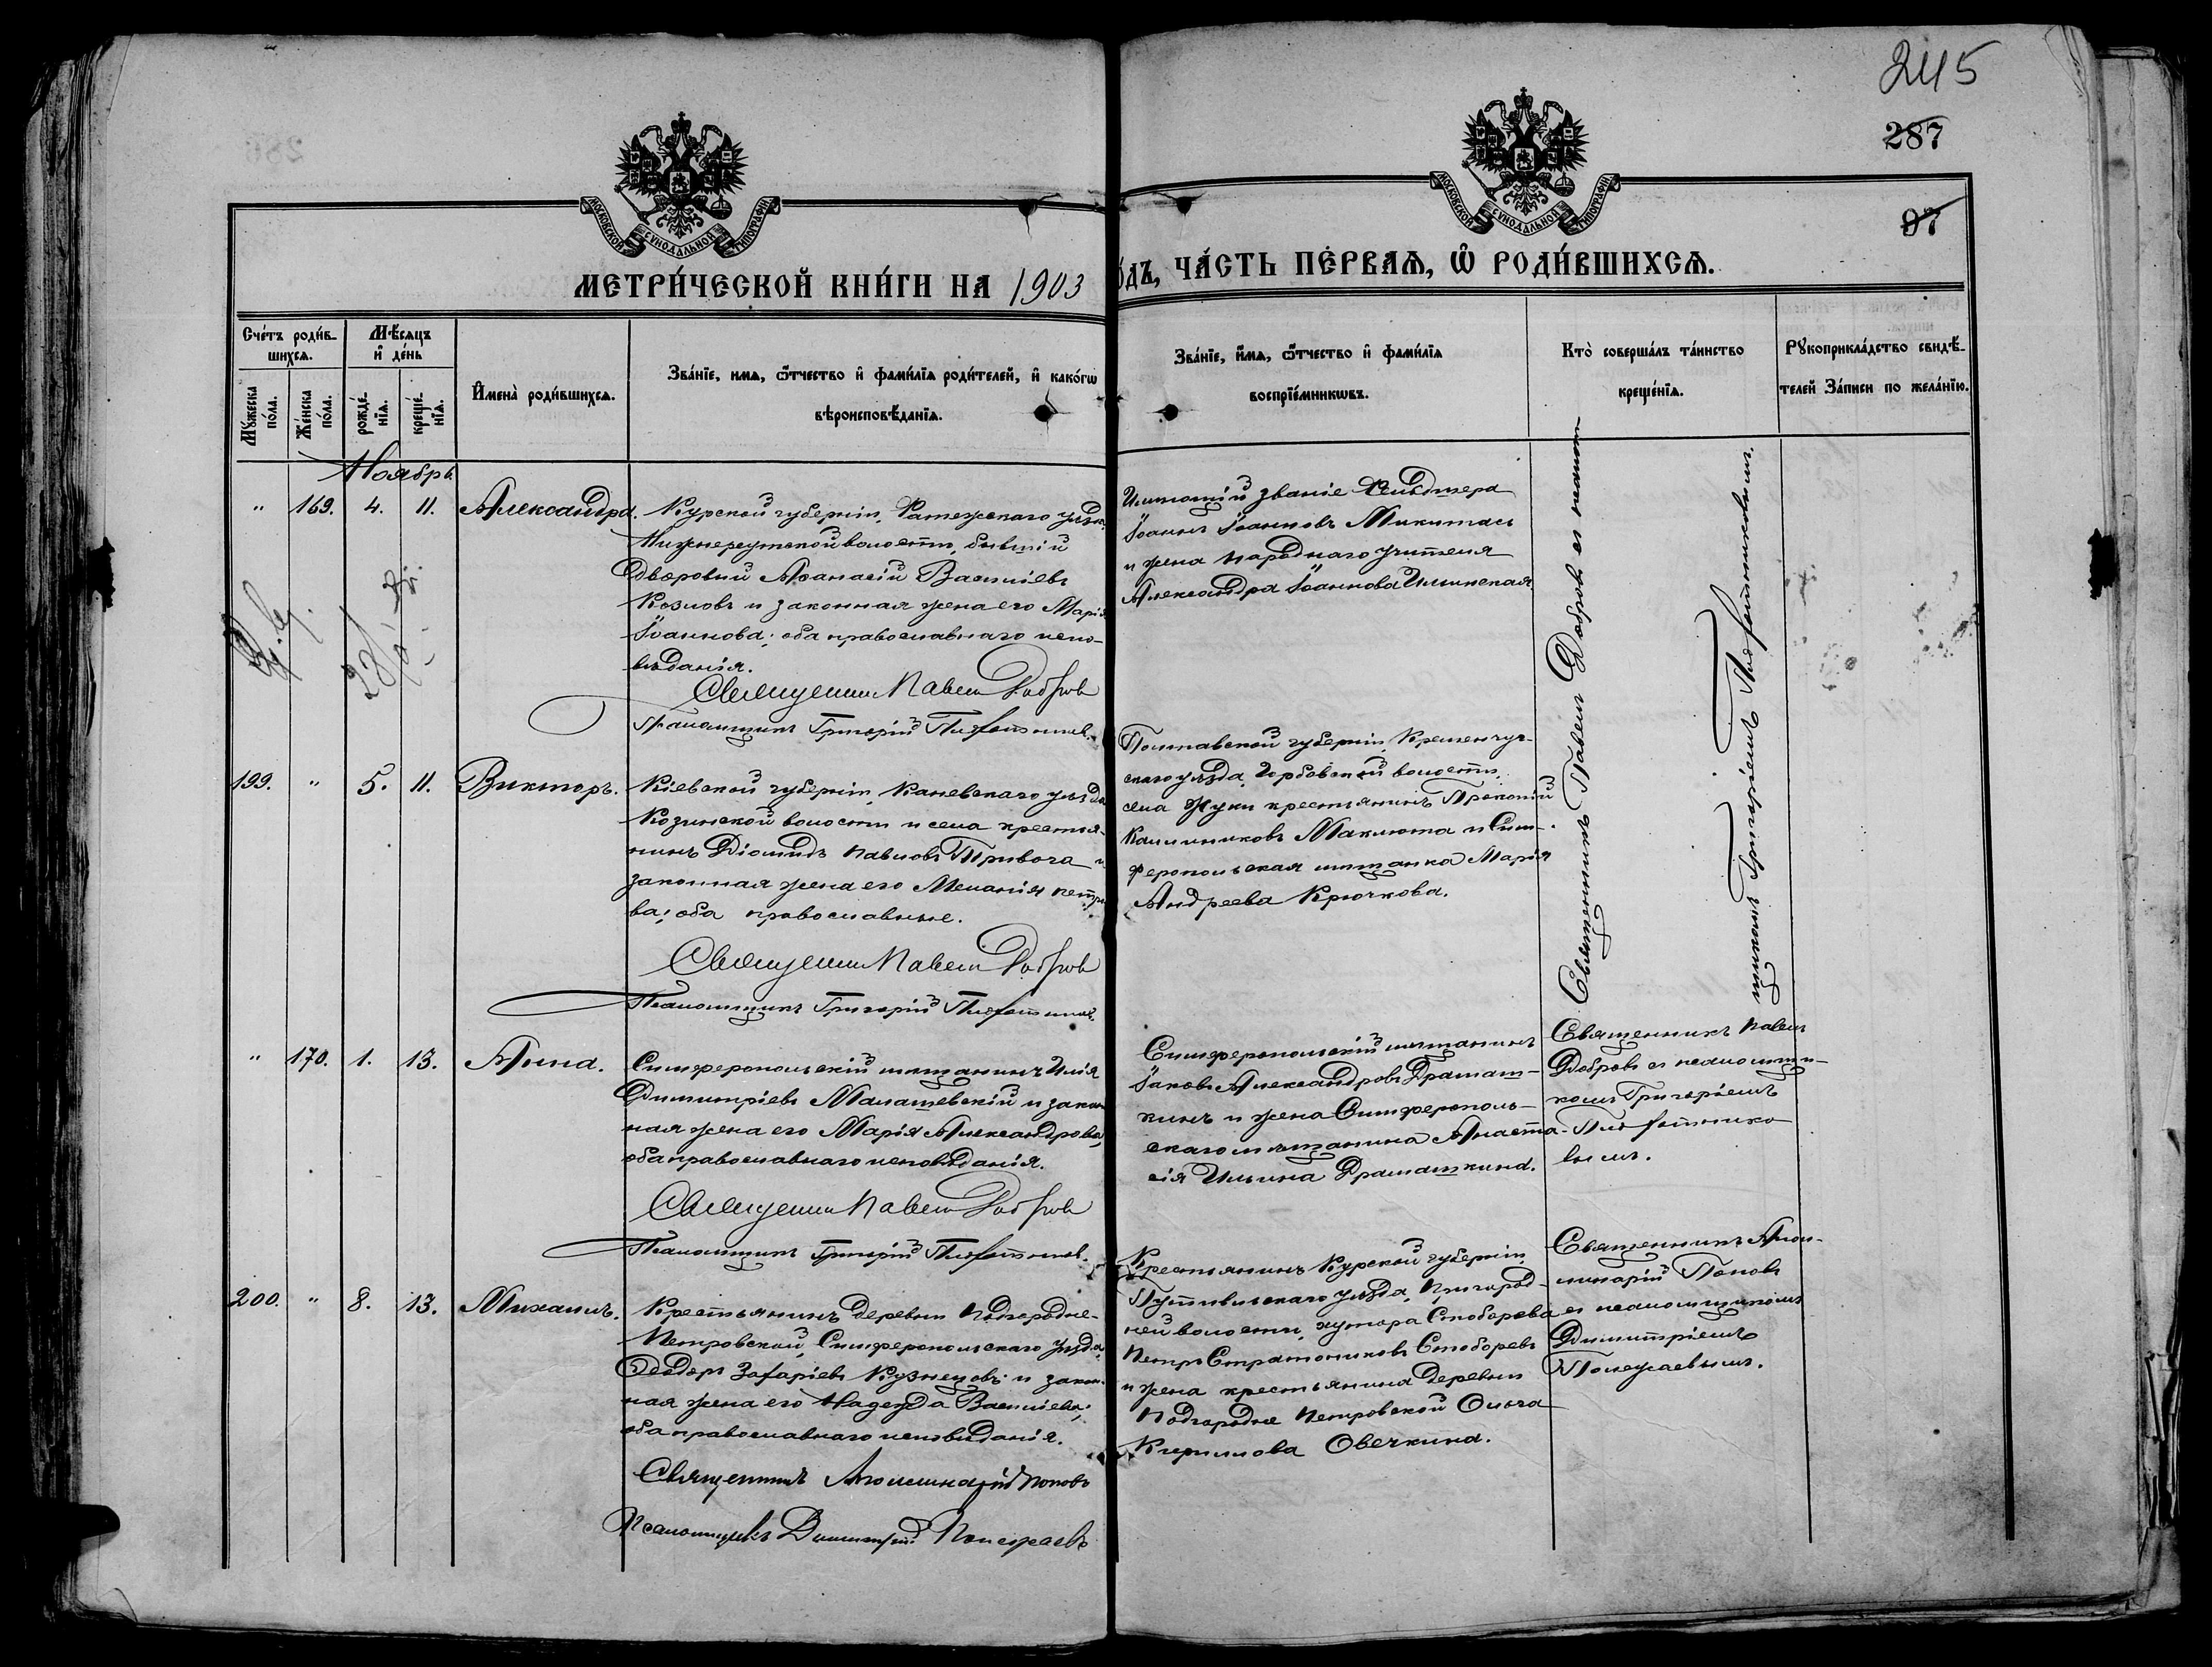 245
287
97
МОСКОВСКОЙ СѴНОДАЛЬНОЙ ТИПОГРАФІИ
МОСКОВСКОЙ СѴНОДАЛЬНОЙ ТИПОГРАФІИ
МЕТРИ́ЧЕСКОЙ КНИ́ГИ НА 1903
ѺДЪ, ЧА́СТЬ ПЕ́РВАѦ, Ѽ РОДИ́ВШИХСѦ.
Сче́тъ роди́в-
шихсѧ.
Мѣ́сѧцъ
и҆ де́нь
Мꙋ́жеска по́ла.
Же́нска по́ла.
рожде́нїѧ.
креще́нїѧ.
И҆мена̀ роди́вшихсѧ.
Зва́нїе, имѧ, ѻ҆́тчество и҆ фами́лїѧ роди́телей, и҆ како́гѡ
вѣроисповѣ́данїѧ.
Зва́нїе, и҆́мѧ, ѻ҆́тчество и҆ фами́лїѧ
воспрїе́мникѡвъ.
Кто̀ соверша́лъ та́инство
креще́нїѧ.
Рꙋкоприкла́дство свидѣ́-
телей За́писи по жела́нїю.
Ноябрь
" 169. 4. 11. Александра.
Курской губерніи, Фатежскаго уѣзда
Нижнереутской волости, бывшій
дворовый Аѳанасій Василіевъ
Козловъ и законная жена его Марія
Іоаннова; оба православнаго испо-
вѣданія.
Священникъ Павелъ Добровъ
Псаломщикъ Григорій
Имѣющій званіе Фельдшера
Іоаннъ Іоанновъ Микитасъ
и жена народнаго учителя
Александра Іоаннова Ильинская
Священникъ Павелъ Добровъ съ псалом-
щикомъ Григоріемъ
199. " 5. 11. Викторъ.
Кіевской губерніи, Каневскаго уѣзда
Козинской волости и села крестья-
нинъ Діомидъ Павловъ Тривога и
законная жена его Меланія Петро
ва; оба православные.
Священникъ Павелъ Добровъ
Псаломщикъ Григорій
Полтавской губерніи, Кременчуг-
скаго уѣзда, Горбовской волости,
села Жуки крестьянинъ Прокопій
Каллиниковъ Маклюта и Сим-
феропольская мѣщанка Марія
Андреева Крючкова.
" 170. 1. 13. Анна.
Симферопольскій мѣщанинъ Илія
Димитріевъ Малашевскій и закон
ная жена его Марія Александрова,
оба православнаго исповѣданія.
Священникъ Павелъ Добровъ
Псаломщикъ Григорій
Симферопольскій мѣщанинъ
Іаковъ Александровъ Драмаш-
кинъ и жена Симферополь-
скаго мѣщанина Анаста-
сія Ильина Драмашкина.
Священникъ Павелъ
Добровъ съ псаломщи-
комъ Григоріемъ
вымъ.
200. " 8. 13. Михаилъ.
Крестьянинъ деревни Подгородне-
Петровской, Симферопольскаго уѣзда,
Ѳеодоръ Захаріевъ Кузнецовъ и закон-
ная жена его Надежда Василіева;
оба православнаго исповѣданія.
Священникъ Аполлинарій Поповъ
Псаломщикъ Димитрій Полежаевъ
Крестьянинъ Курской губерніи,
Путивльскаго уѣзда, Пригород-
ней волости, хутора Столборева
Петръ Стратониковъ Столборевъ
и жена крестьянина деревни
Подгородне Петровской Ольга
Кириллова Овечкина.
Священникъ Апол-
линарій Поповъ
съ псаломщикомъ
Димитріемъ
Полежаевымъ.